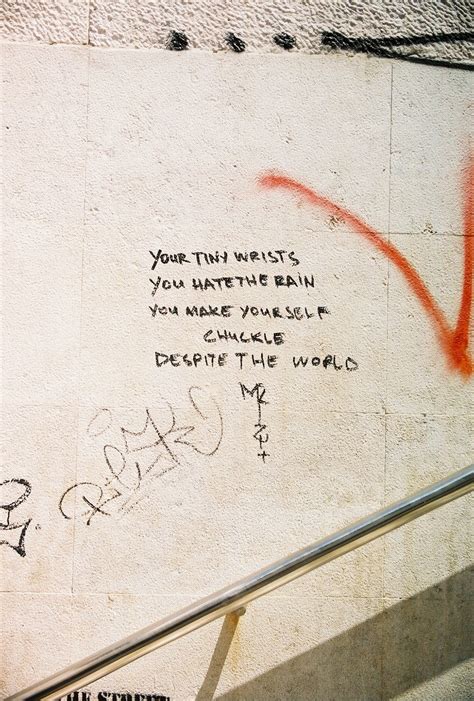 YOUR TINY WRISTS
YOU HATE THE RAIN
YOU MAKE YOURSELF
CHUCKLE
DESPITE THE WORLD
THE STREET